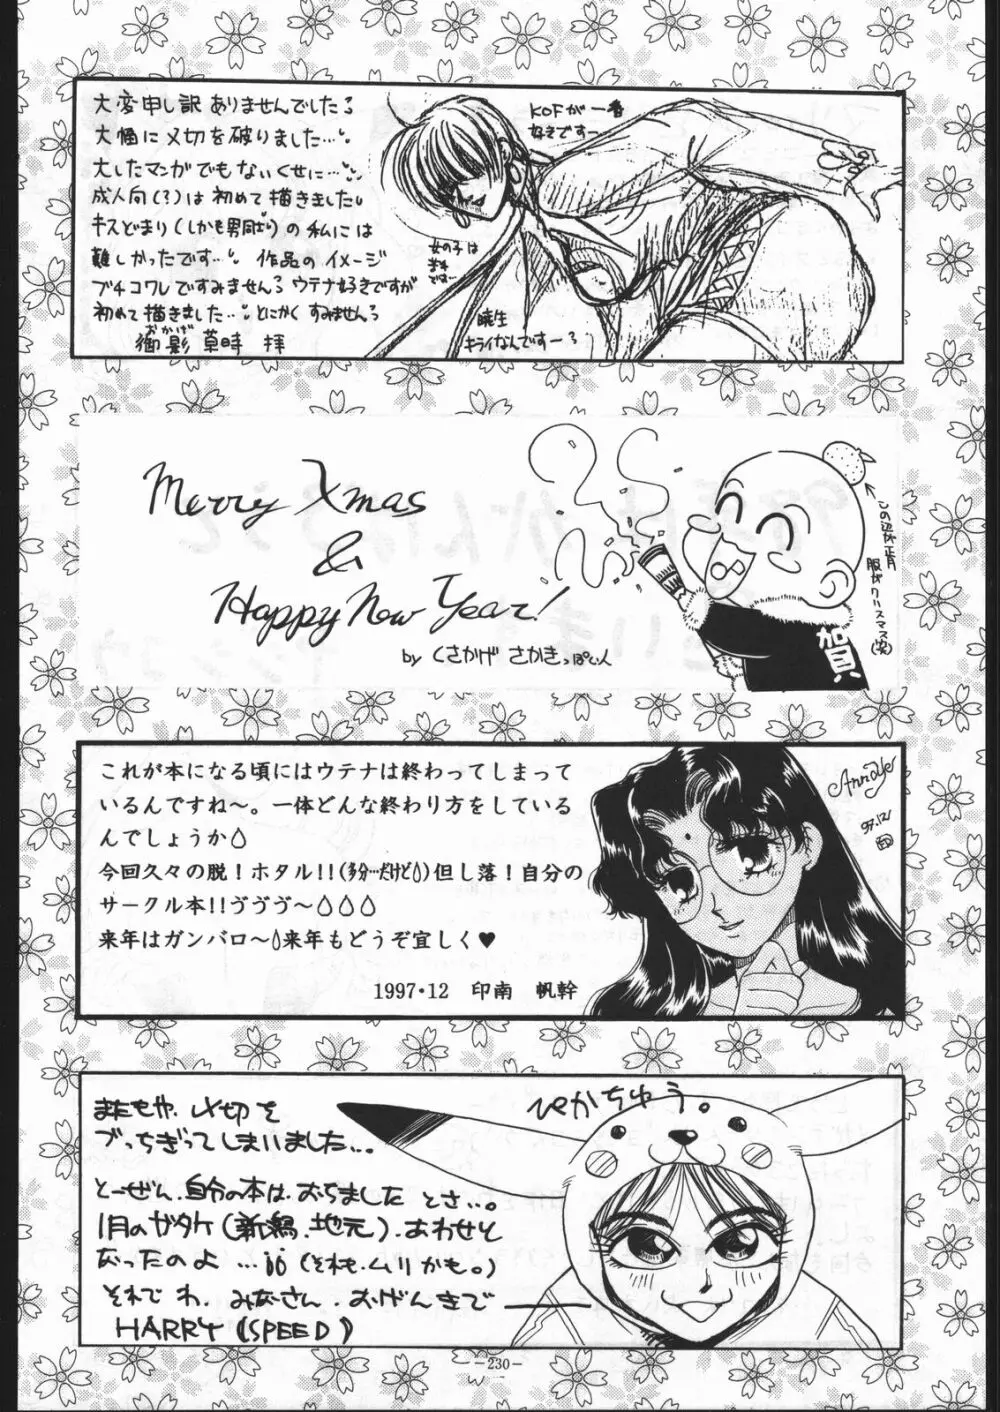 大変申し訳ありませんでした
大幅に〆切を破りました…
大したマンガでもないくせに…
成人向(?)は初めて描きました
キスどまり(しかも男同士)の私には
難しかったです… 作品のイメージ
ブチコワしですみません ウテナ好きですが
初めて描きました… とにかくすみません
御影 草時 拝
KOFが一番
好きですー
女の子は
暁生
キライなんですー
Merry Xmas
&
Happy New Year!
by くさかげ さかき
この辺正月
服がクリスマス(笑)
賀
これが本になる頃にはウテナは終わってしまって
いるんですね〜。一体どんな終わり方をしている
んでしょうか
今回久々の脱!ホタル!!(多分…だけど)但し落!自分の
サークル本!!ゔゔゔ〜
来年はガンバロ〜来年もどうぞ宜しく♥
1997・12 印南 帆幹
97.12
印
ぴかちゅう。
またもや、〆切を
ブっちぎってしまいました…。
とーぜん、自分の本は、おちました とさ…。
1月のガタケ(新潟、地元)、あわせと
なったのよ …(それも、ムリかも。)
それでわ、みなさん、おげんきで
HARRY (SPEED)
-230-